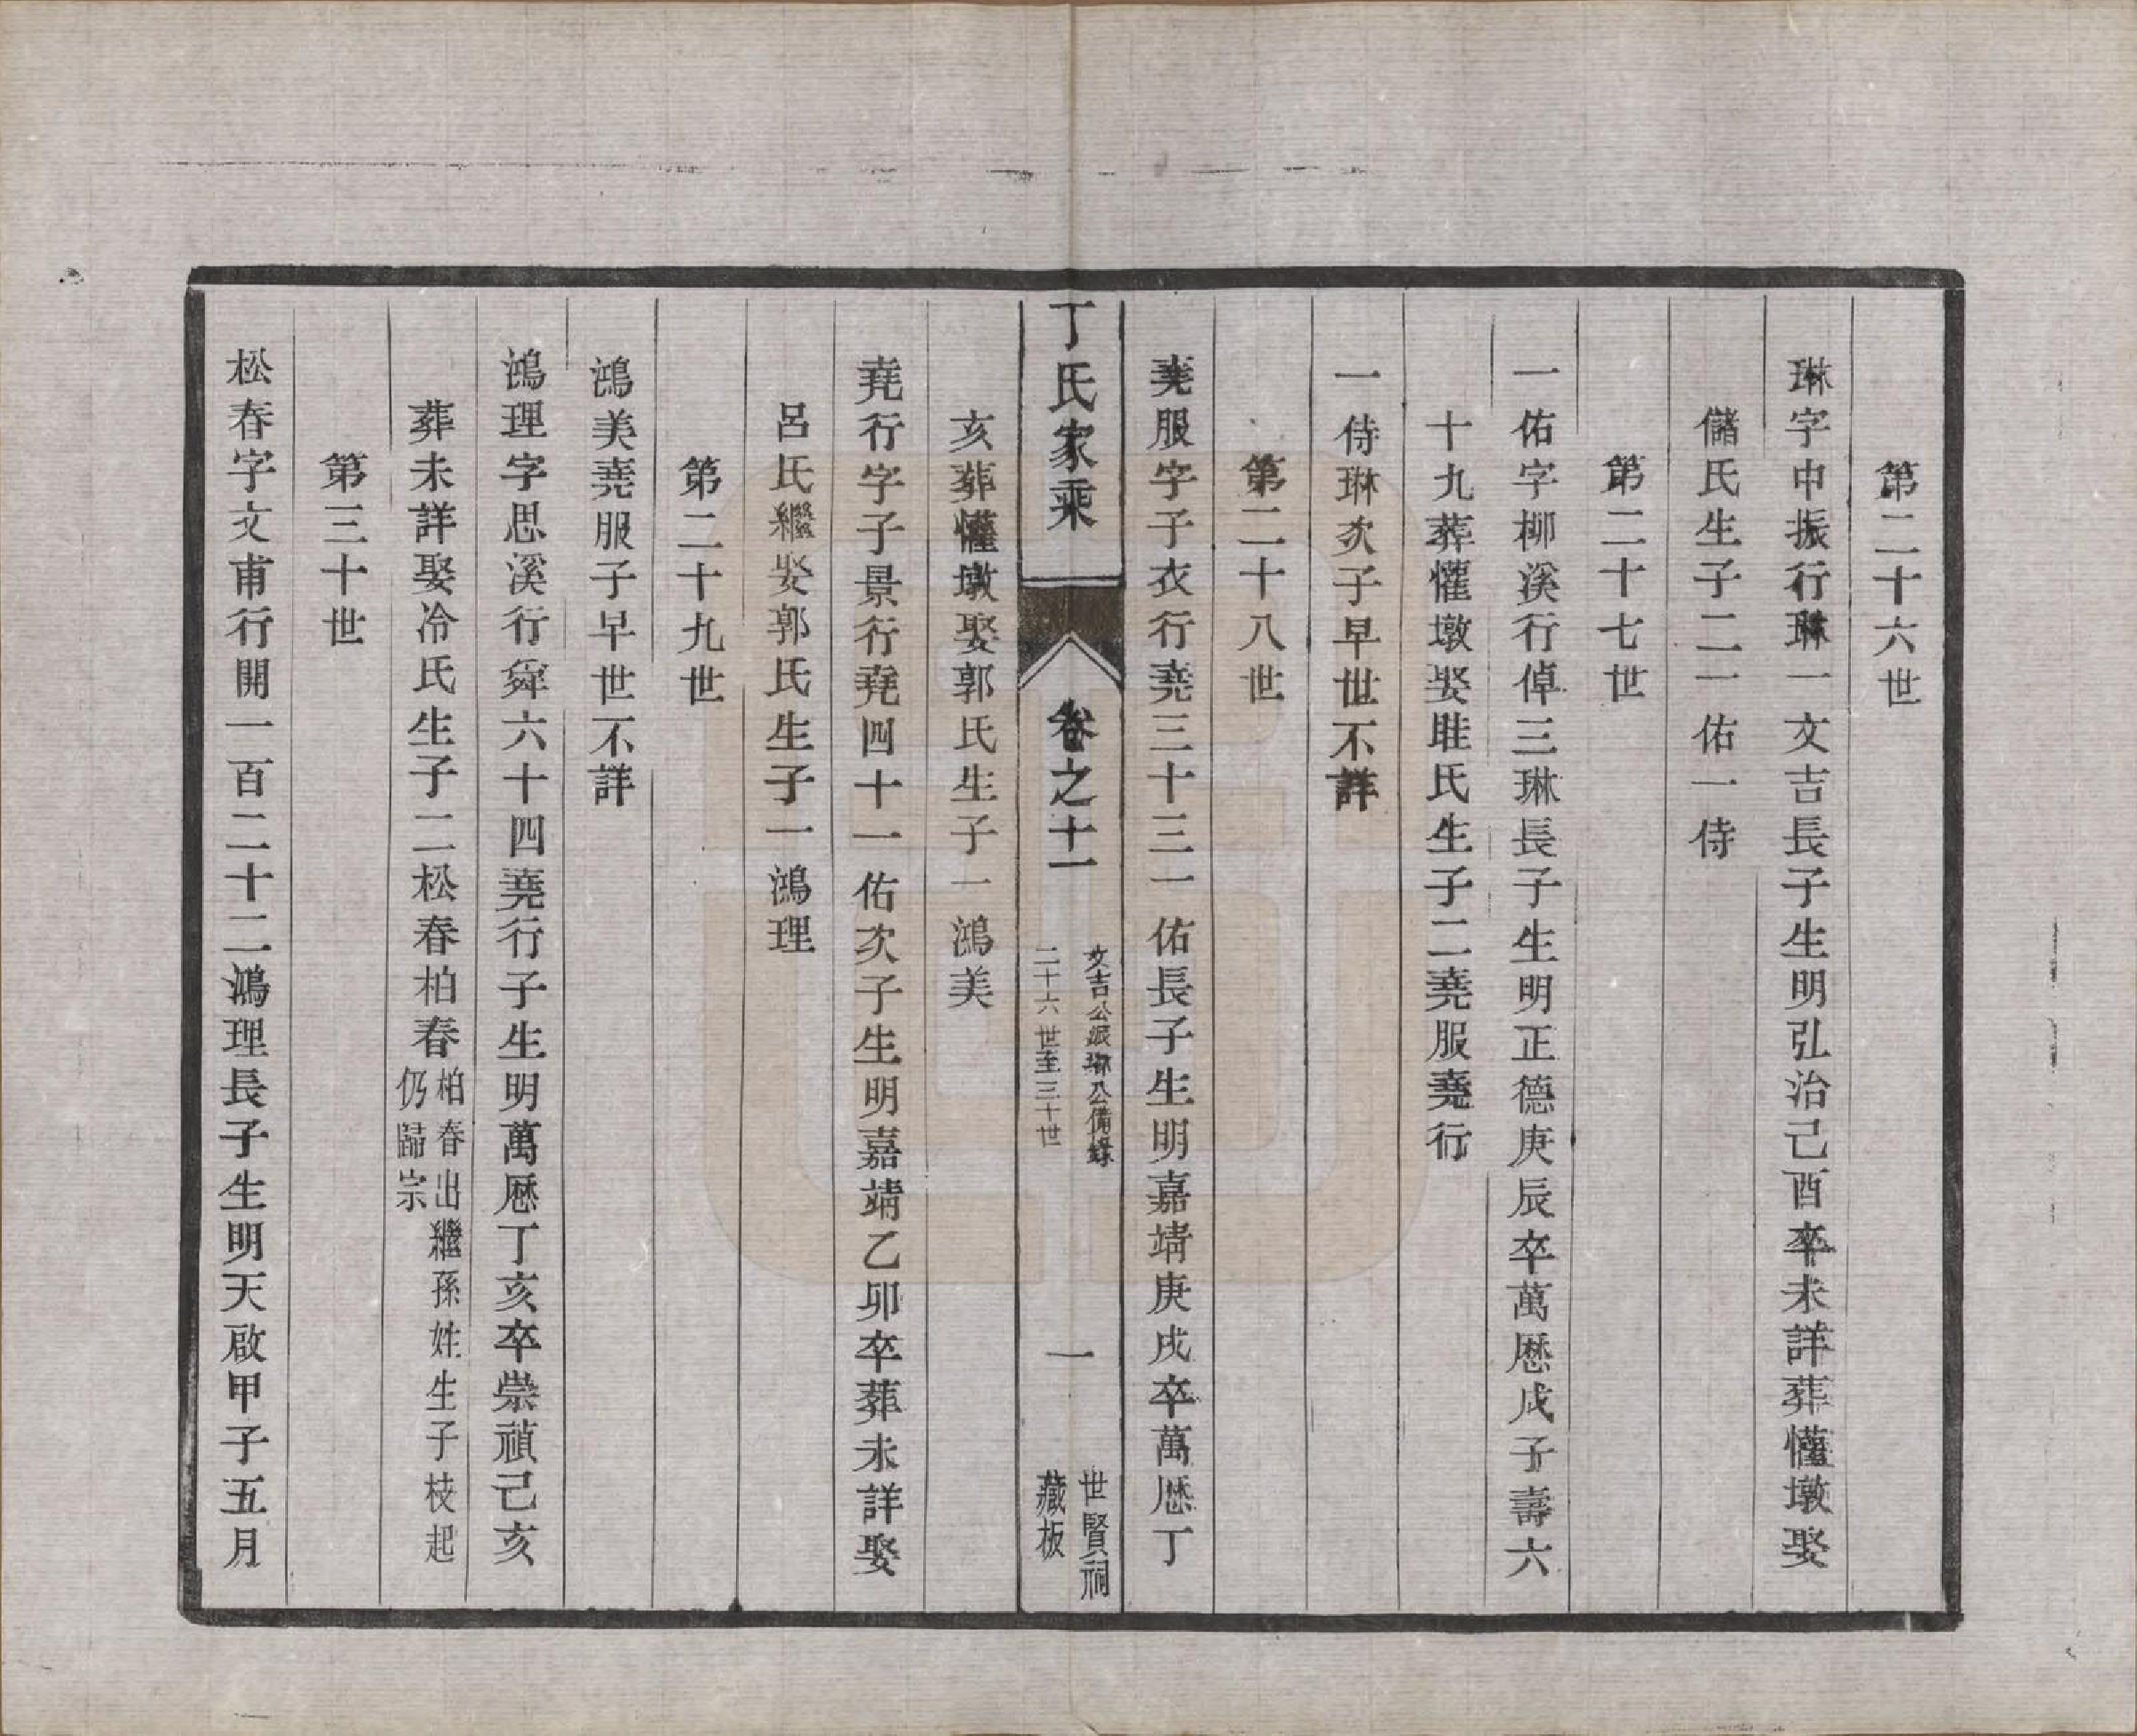 第二十六世
琳字中振行琳一文吉長子生明弘治己酉卒未詳葬懽墩娶
儲氏生子二一佑一侍
第二十七世
一佑字柳溪行倬三琳長子生明正德庚辰卒萬厯戊子壽六
十九葬懽墩娶眭氏生子二堯服堯行
一侍琳次子早世不詳
第二十八世
堯服字子衣行堯三十三一佑長子生明嘉靖庚戌卒萬厯丁
丁氏家乘
卷之十一
文吉公派琳公備錄
二十六世至三十世
一
世賢祠
藏板
亥葬懽墩娶郭氏生子一鴻美
堯行字子景行堯四十一佑次子生明嘉靖乙卯卒葬未詳娶
呂氏繼娶郭氏生子一鴻理
第二十九世
鴻美堯服子早世不詳
鴻理字思溪行舜六十四堯行子生明萬厯丁亥卒崇禎己亥
葬未詳娶冷氏生子二松春柏春
柏春出繼孫姓生子枝起
仍歸宗
第三十世
松春字文甫行開一百二十二鴻理長子生明天啟甲子五月